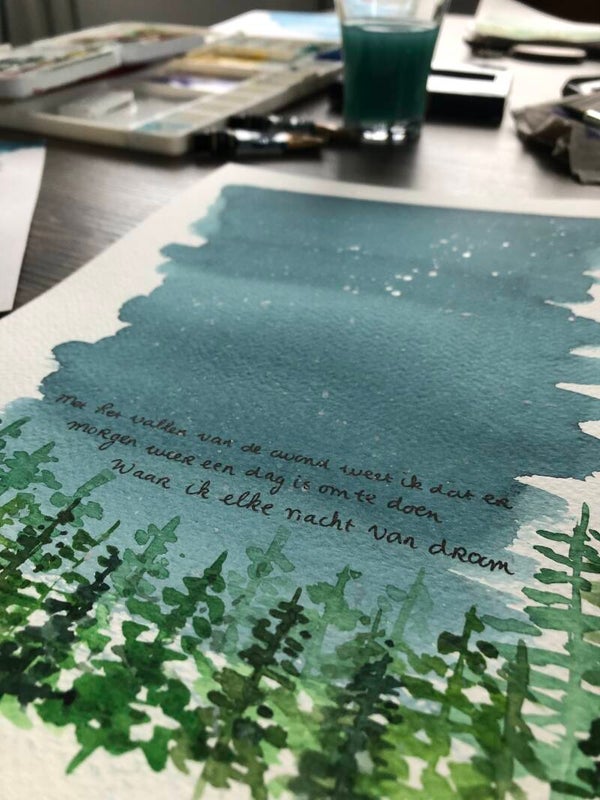 Met het vallen van de avond weet ik dat er
morgen weer een dag is om te doen
Waar ik elke nacht van droom